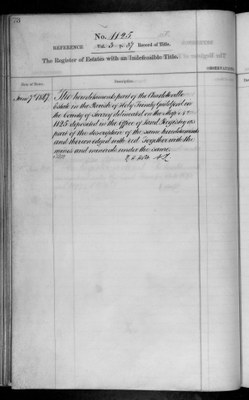 73
No. 1125
REFERENCE Vol. 3 p. 37 Record of Title.
The Register of Estates with an Indefeasible Title.
Date of Entry.
Description.
OBSERVATIONS
June 7th 1867
The hereditaments part of the Charlotteville
Estate in the Parish of Holy Trinity Guildford in
the County of Surrey delineated on the Map No
1125 deposited in the Office of Land Registry as
part of the description of the same hereditaments
and thereon edged with red Together with the
mines and minerals under the same.